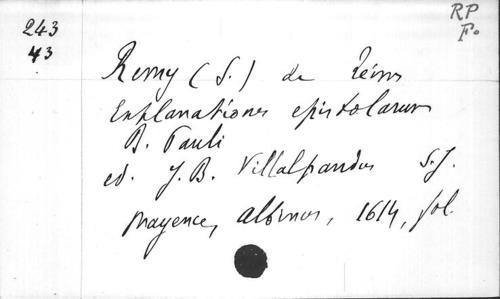 243
43
RP
F.
Remy (S.) de Reims
Explanationes epistolarum
B. Pauli
ed. J.B. Villalpandus S.J.
Mayence, Albinus, 1614, fol.